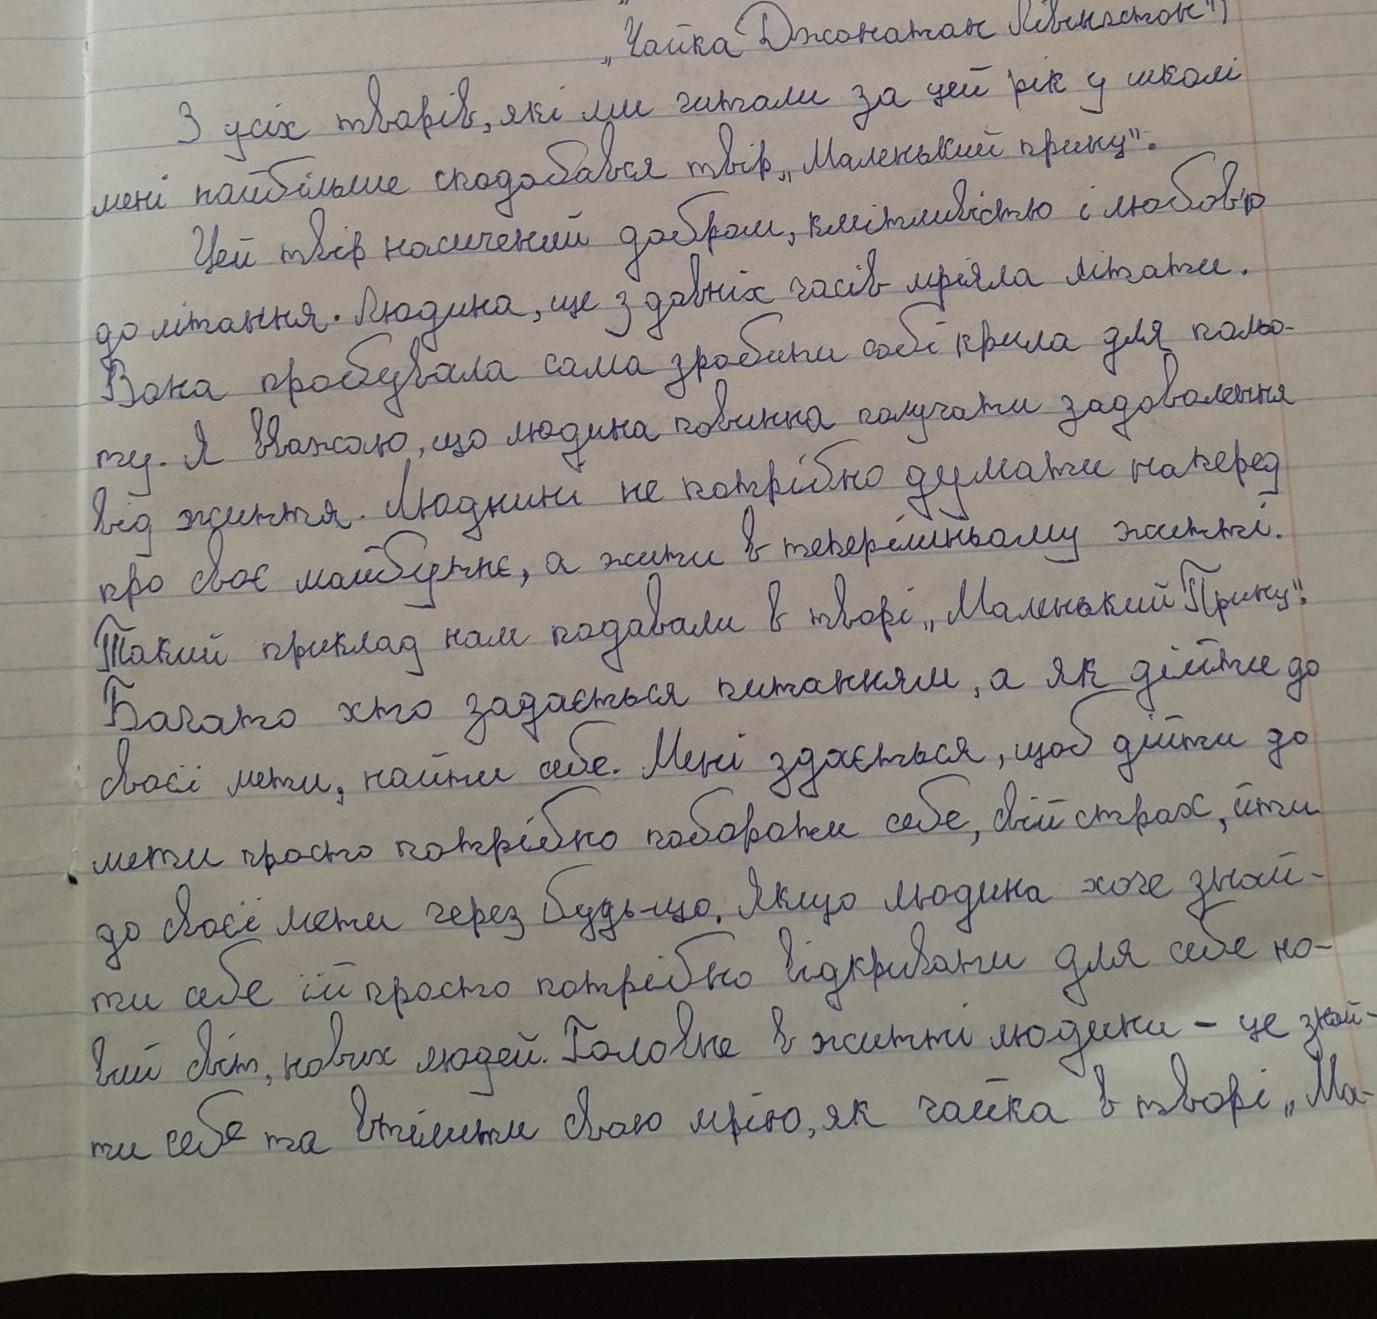 „Чайка Джонатан Лівінгстон")
З усіх творів, які ми читали за цей рік у школі
мені найбільше сподобався твір „Маленький принц".
Цей твір насичений добром, кмітливістю і любов'ю
до літання. Людина, ще з давніх часів мріяла літати.
Вона пробувала сама зробити собі крила для польо-
ту. Я вважаю, що людина повинна получати задоволення
від життя. Людині не потрібно думати наперед
про своє майбутнє, а жити в теперішньому житті.
Такий приклад нам подавали в творі „Маленький Принц".
Багато хто задається питанням, а як дійти до
своєї мети, найти себе. Мені здається, щоб дійти до
мети просто потрібно побороти себе, свій страх, йти
до своєї мети через будь-що. Якщо людина хоче знай-
ти себе їй просто потрібно відкривати для себе но-
вий світ, нових людей. Головне в житті людини – це знай-
ти себе та втілити свою мрію, як чайка в творі „Ма-